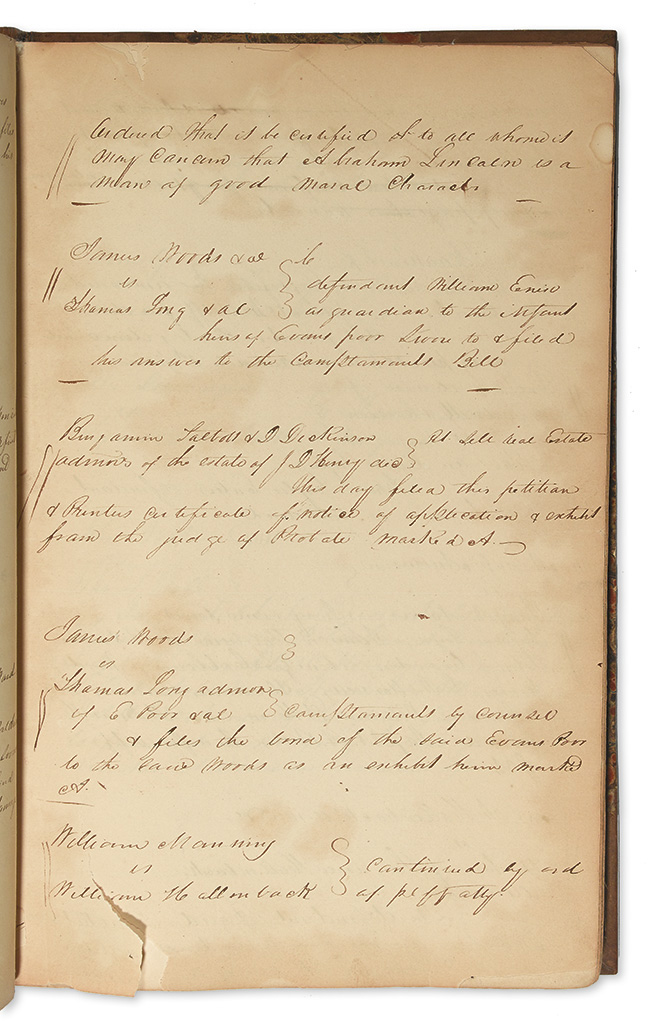 Ordered that it be certified & to all whom it
May Concern that Abraham Lincoln is a
man of good Moral Character
James Woods & al
vs
Thomas Long & al
defendant William Enise
as guardian to the infant
heirs of Evans poor Swore to & filed
his answer to the Complainants Bill
Benjamin Talbott & D Dickinson
admors of the estate of J D Henry decd
Pt Sell real Estate
this day filed this petition
& Printers certificate of notice of application & exhibit
from the judge of Probate marked A.
James Woods
vs
Thomas Long admor
of E Poor & al
Complainants by counsel
& files the bond of the said Evans Poor
to the said Woods as an exhibit herein marked
A.
William Manning
vs
William Hallenback
Continued by ord
of plff atty.